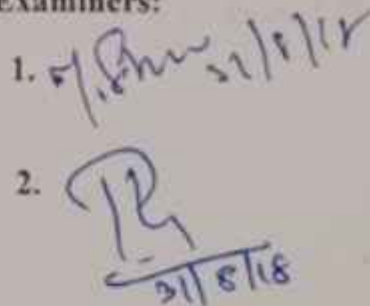 Examiners:
1. 31/8/18
2.
31/8/18